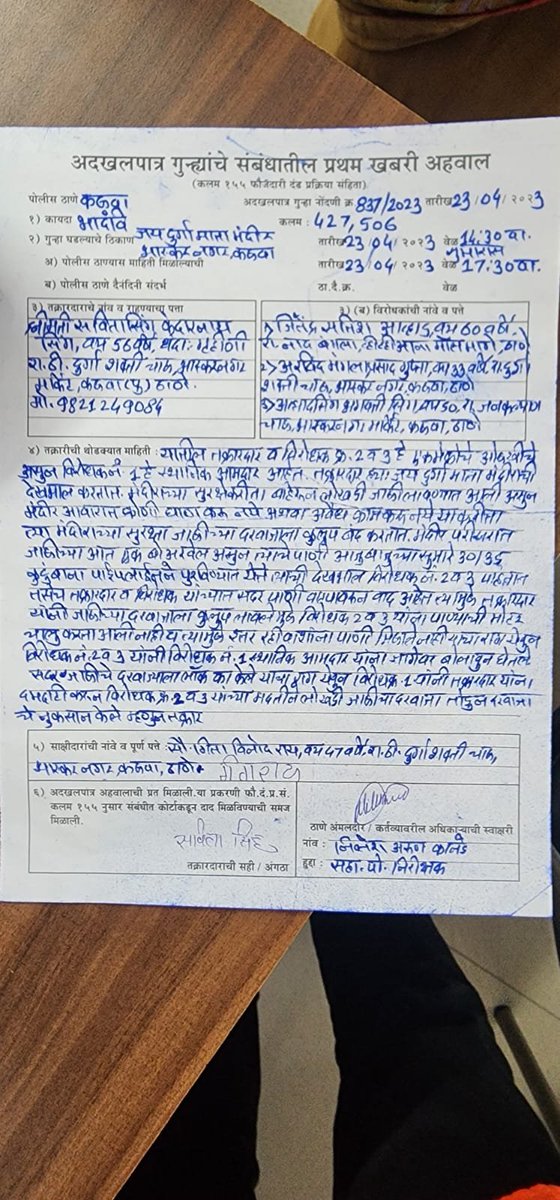 अदखलपात्र गुन्ह्यांचे संबंधातील प्रथम खबरी अहवाल
(कलम १५५ फौजदारी दंड प्रक्रिया संहिता)
पोलीस ठाणे कळवा अदखलपात्र गुन्हा नोंदणी क्र 837/2023 तारीख 23/04/२०२3
१) कायदा भादंवि कलम : 427, 506
२) गुन्हा घडल्याचे ठिकाण जय दुर्गा माता मंदीर तारीख 23/04/२०२3 वेळ 14:30 वा.
भास्कर नगर, कळवा सुमारास
अ) पोलीस ठाण्यास माहिती मिळाल्याची तारीख 23/04/२०२3 वेळ 17:30 वा.
ब) पोलीस ठाणे दैनंदिनी संदर्भ ठा.दै.क्र. वेळ
३) तक्रारदाराचे नांव व राहण्याचा पत्ता
श्रीमती सविता सिंग केदारनाथ
सिंग, वय 56 वर्षे, धंदा: गृहीणी
रा.ठी. दुर्गा शक्ती चाळ, भास्करनगर
मार्केट, कळवा (पु) ठाणे.
मो. 9821249084
३) (ब) विरोधकांची नांवे व पत्ते
1) जितेंद्र सतिश आव्हाड, वय 60 वर्षे.
रा. नाद बंगला, ठाणे
2) अरविंद मंगलाप्रसाद गुप्ता, वय 33 वर्षे, रा. दुर्गा
शक्ती चाळ, भास्कर नगर, कळवा, ठाणे
3) भगवती सिंग, वय 50, रा. जनकल्याण
चाळ, भास्करनगर मार्केट, कळवा, ठाणे
४) तक्रारीची थोडक्यात माहिती : यातील तक्रारदार व विरोधक क्र. 2 व 3 हे एकमेकांचे ओळखीचे
असुन विरोधक नं. 1 हे स्थानिक आमदार आहेत. तक्रारदार ह्या जय दुर्गा माता मंदीराची
देखभाल करतात. मंदीराच्या सुरक्षेकरीता बाहेरून लोखंडी जाळी लावण्यात आली असुन
मंदीर आवारात कोणी घाण करू नये अथवा अवैध काम करू नये याकरीता
त्या मंदीराच्या सुरक्षा जाळीच्या दरवाजाला कुलुप बंद करतात. मंदीर परीसरात
जाळीच्या आत एक बोअरवेल असुन त्याचे पाणी आजुबाजुच्या सुमारे 30/35
कुटुंबांना पाईपलाईनने पुरविण्यात येते त्याची देखभाल विरोधक नं. 2 व 3 पाहतात
तसेच तक्रारदार व विरोधक यांच्यात सदर पाणी वापरावरून वाद आहेत त्यामुळे तक्रारदार
यांनी जाळीच्या दरवाजाला कुलुप लावलेमुळे विरोधक 2 व 3 यांना पाण्याची मोटर
चालु करता आली नाही व त्यामुळे इतर रहीवाशांना पाणी मिळाले नाही याचा राग येवुन
विरोधक नं. 2 व 3 यांनी विरोधक नं. 1 स्थानिक आमदार यांना जागेवर बोलावुन घेतले
सदर जाळीचे दरवाजाला लॉक का केले याचा राग येवुन विरोधक 1 यांनी तक्रारदार यांना
दमदाटी करून विरोधक क्र. 2 व 3 यांच्या मदतीने लोखंडी जाळीचा दरवाजा तोडुन दरवाजा
चे नुकसान केले म्हणुन तक्रार
५) साक्षीदारांची नांवे व पूर्ण पत्ते : सौ. गिता विनोद राय, वय 47 वर्षे, रा.ठी. दुर्गाशक्ती चाळ,
भास्कर नगर, कळवा, ठाणे गीता राय
६) अदखलपात्र अहवालाची प्रत मिळाली.या प्रकरणी फौ.दं.प्र.सं.
कलम १५५ नुसार संबंधीत कोर्टाकडून दाद मिळविण्याची समज
मिळाली.
सविता सिंह
तक्रारदाराची सही / अंगठा
ठाणे अंमलदार / कर्तव्यावरील अधिकाऱ्याची स्वाक्षरी
नांव : निलेश अरुण
हुद्दा : सहा. पो. निरीक्षक